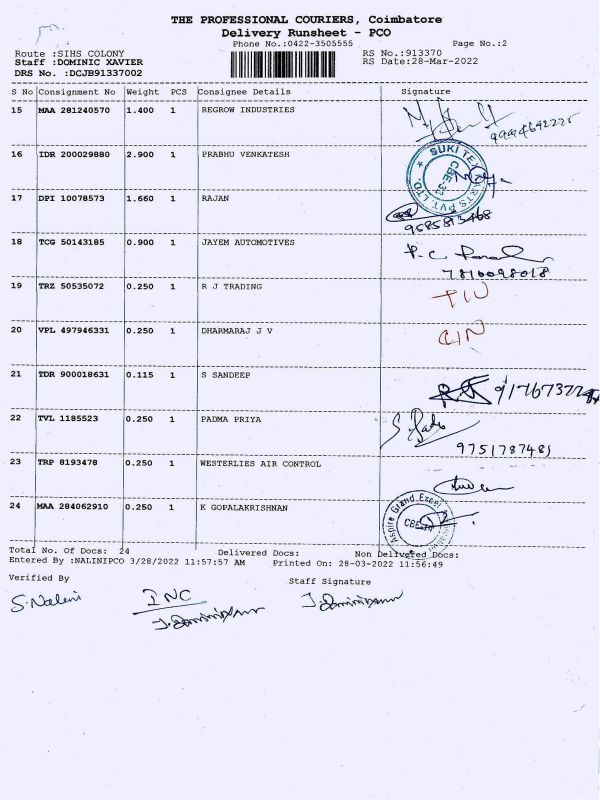 THE PROFESSIONAL COURIERS, Coimbatore
Delivery Runsheet - PCO
Phone No.:0422-3505555 Page No.:2
Route :SIHS COLONY RS No.:913370
Staff :DOMINIC XAVIER RS Date:28-Mar-2022
DRS No. :DCJB91337002
S No Consignment No Weight PCS Consignee Details Signature
15 MAA 281240570 1.400 1 REGROW INDUSTRIES
16 IDR 200029880 2.900 1 PRABHU VENKATESH
17 DPI 10078573 1.660 1 RAJAN
9585815468
18 TCG 50143185 0.900 1 JAYEM AUTOMOTIVES
7810098018
19 TRZ 50535072 0.250 1 R J TRADING
20 VPL 497946331 0.250 1 DHARMARAJ J V
21 TDR 900018631 0.115 1 S SANDEEP
22 TVL 1185523 0.250 1 PADMA PRIYA
9751787481
23 TRP 8193478 0.250 1 WESTERLIES AIR CONTROL
24 MAA 284062910 0.250 1 K GOPALAKRISHNAN
Total No. Of Docs: 24 Delivered Docs: Non Delivered Docs:
Entered By :NALINIPCO 3/28/2022 11:57:57 AM Printed On: 28-03-2022 11:56:49
Verified By Staff Signature
S. Nalini INC